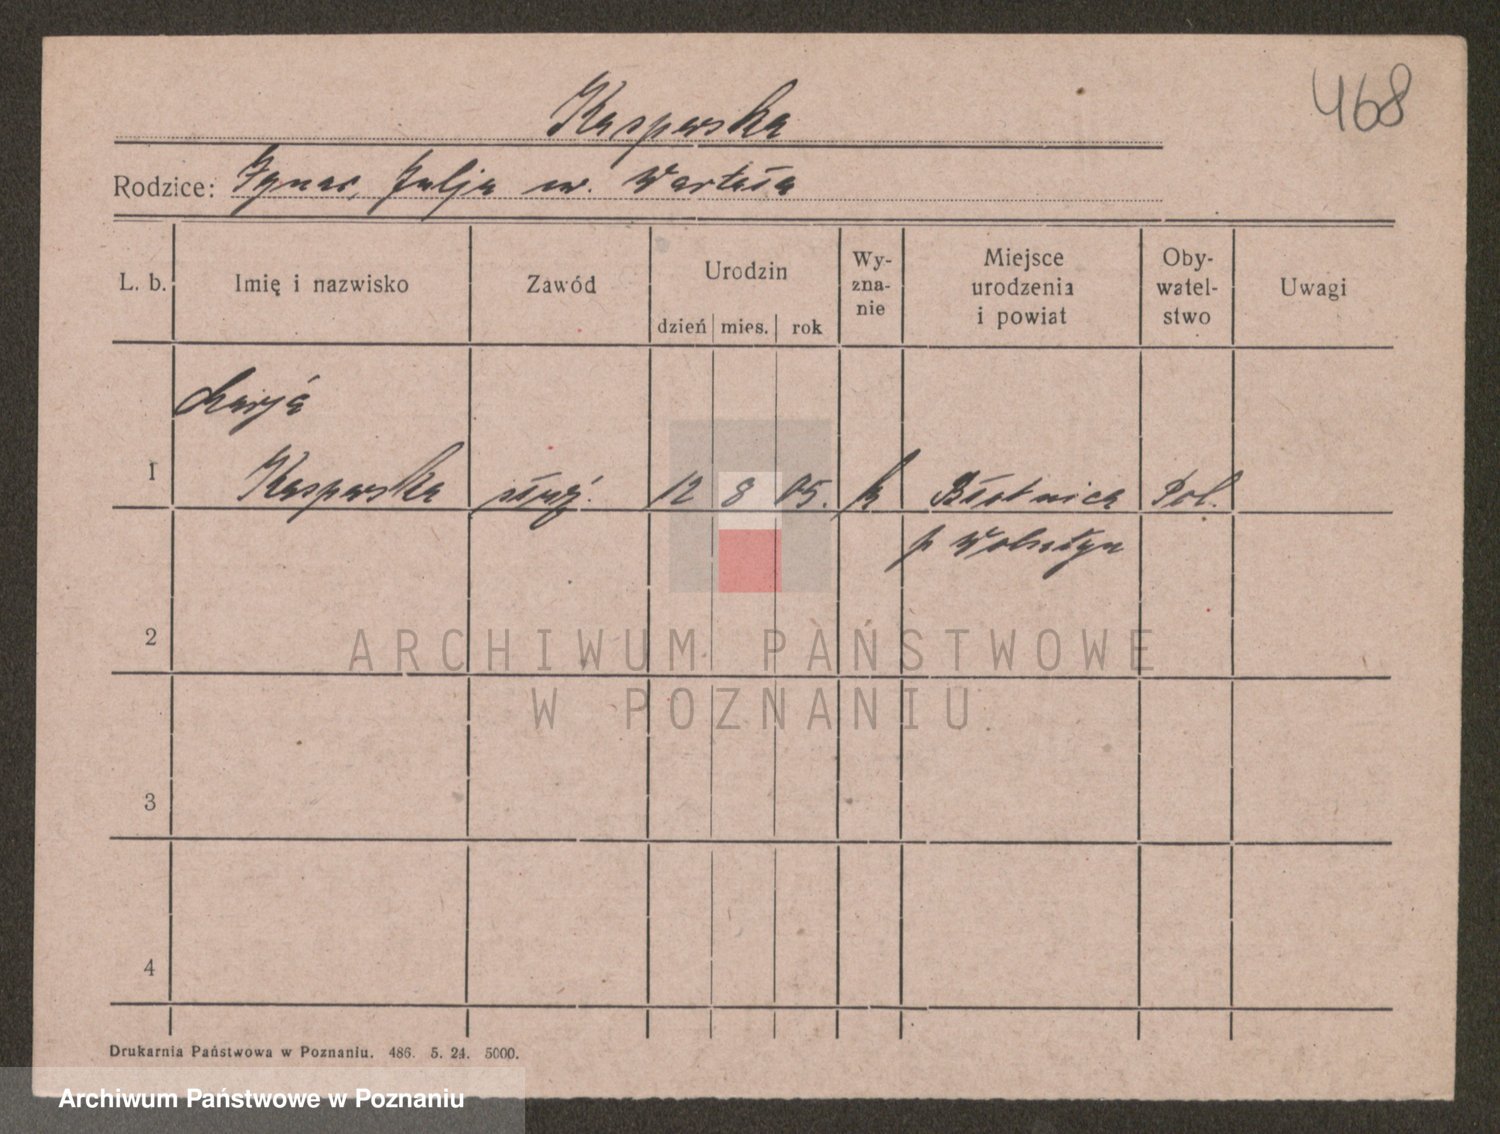 468
Kasperska
Rodzice: Ignac, Julja
L. b. Imię i nazwisko Zawód Urodzin dzień mies. rok Wy-zna-nie Miejsce urodzenia i powiat Oby-watel-stwo Uwagi
Marja
1 Kasperska służ. 12 8 05. k Błotnica Pol.
p Wolsztyn
2
3
4
ARCHIWUM PAŃSTWOWE
W POZNANIU
Drukarnia Państwowa w Poznaniu. 486. 5. 24. 5000.
Archiwum Państwowe w Poznaniu